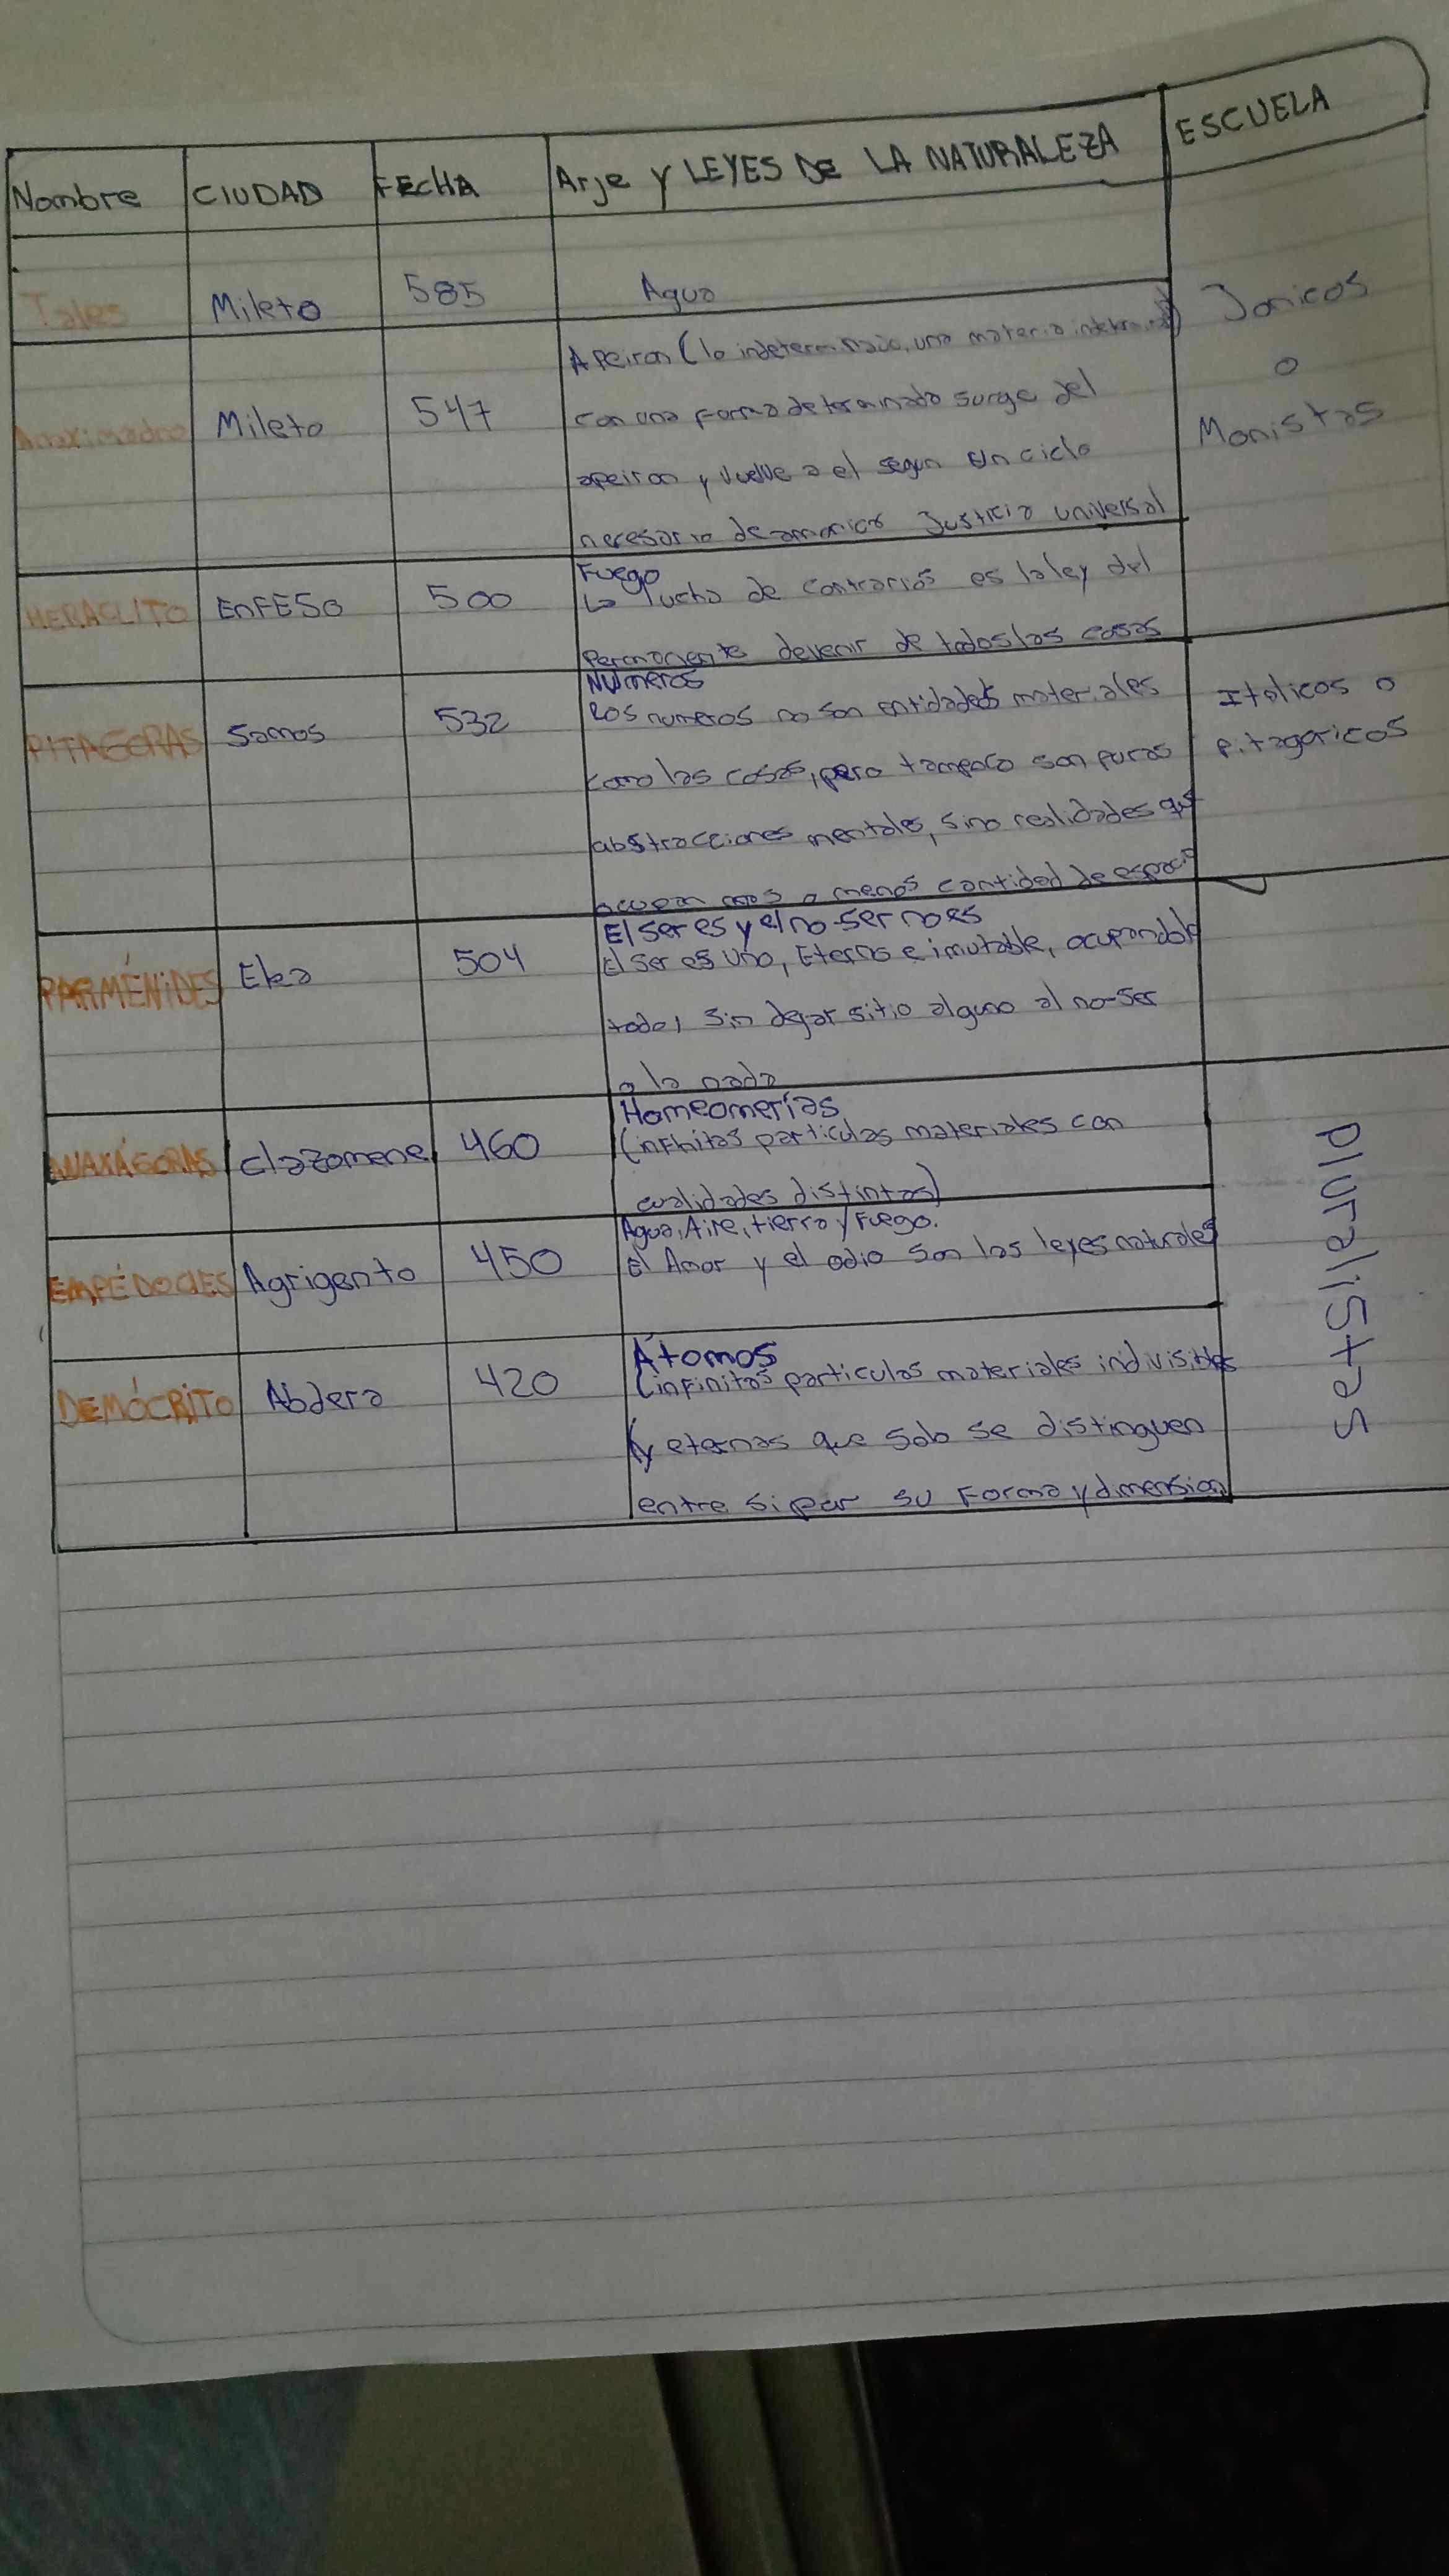 Nombre CIUDAD FECHA Arje y LEYES DE LA NATURALEZA ESCUELA
Tales Mileto 585 Agua
Jonicos
o
Monistas
Anaximadro Mileto 547 Apeiron (lo indeterminado, una materia
con una forma determinada surge del
apeiron y vuelve a el segun un ciclo
necesario de armonica Justicia universal
HERACLITO EnFESO 500 Fuego
La lucha de contrarios es la ley del
permanente devenir de todos las cosas
PITAGORAS Samos 532 Números
Los numeros no son entidades materiales
como las cosas, pero tampoco son puras
abstracciones mentales, sino realidades que
ocupan mas o menos cantidad de espacio
Italicos o
pitagoricos
PARMÉNIDES Elea 504 El ser es y el no-ser no es
El ser es uno, Eterno e imutable, ocupandolo
todo, sin dejar sitio alguno al no-ser
o la nada
ANAXÁGORAS clazomene 460 Homeomerías
(infinitas particulas materiales con
cualidades distintas)
EMPÉDOCLES Agrigento 450 Agua, Aire, tierra y Fuego.
El Amor y el odio son las leyes naturales
DEMÓCRITO Abdera 420 Átomos
(infinitas particulas materiales indivisibles
y eternas que solo se distinguen
entre si por su Forma y dimension)
pluralistas